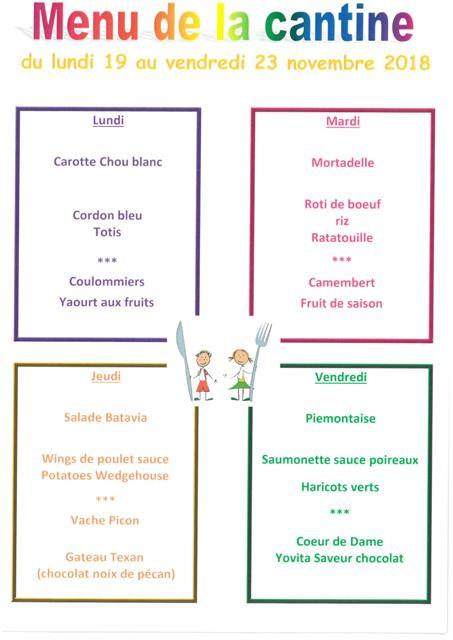 Menu de la cantine
du lundi 19 au vendredi 23 novembre 2018
Lundi
Carotte Chou blanc
Cordon bleu
Totis
***
Coulommiers
Yaourt aux fruits
Mardi
Mortadelle
Roti de boeuf
riz
Ratatouille
***
Camembert
Fruit de saison
Jeudi
Salade Batavia
Wings de poulet sauce
Potatoes Wedgehouse
***
Vache Picon
Gateau Texan
(chocolat noix de pécan)
Vendredi
Piemontaise
Saumonette sauce poireaux
Haricots verts
***
Coeur de Dame
Yovita Saveur chocolat